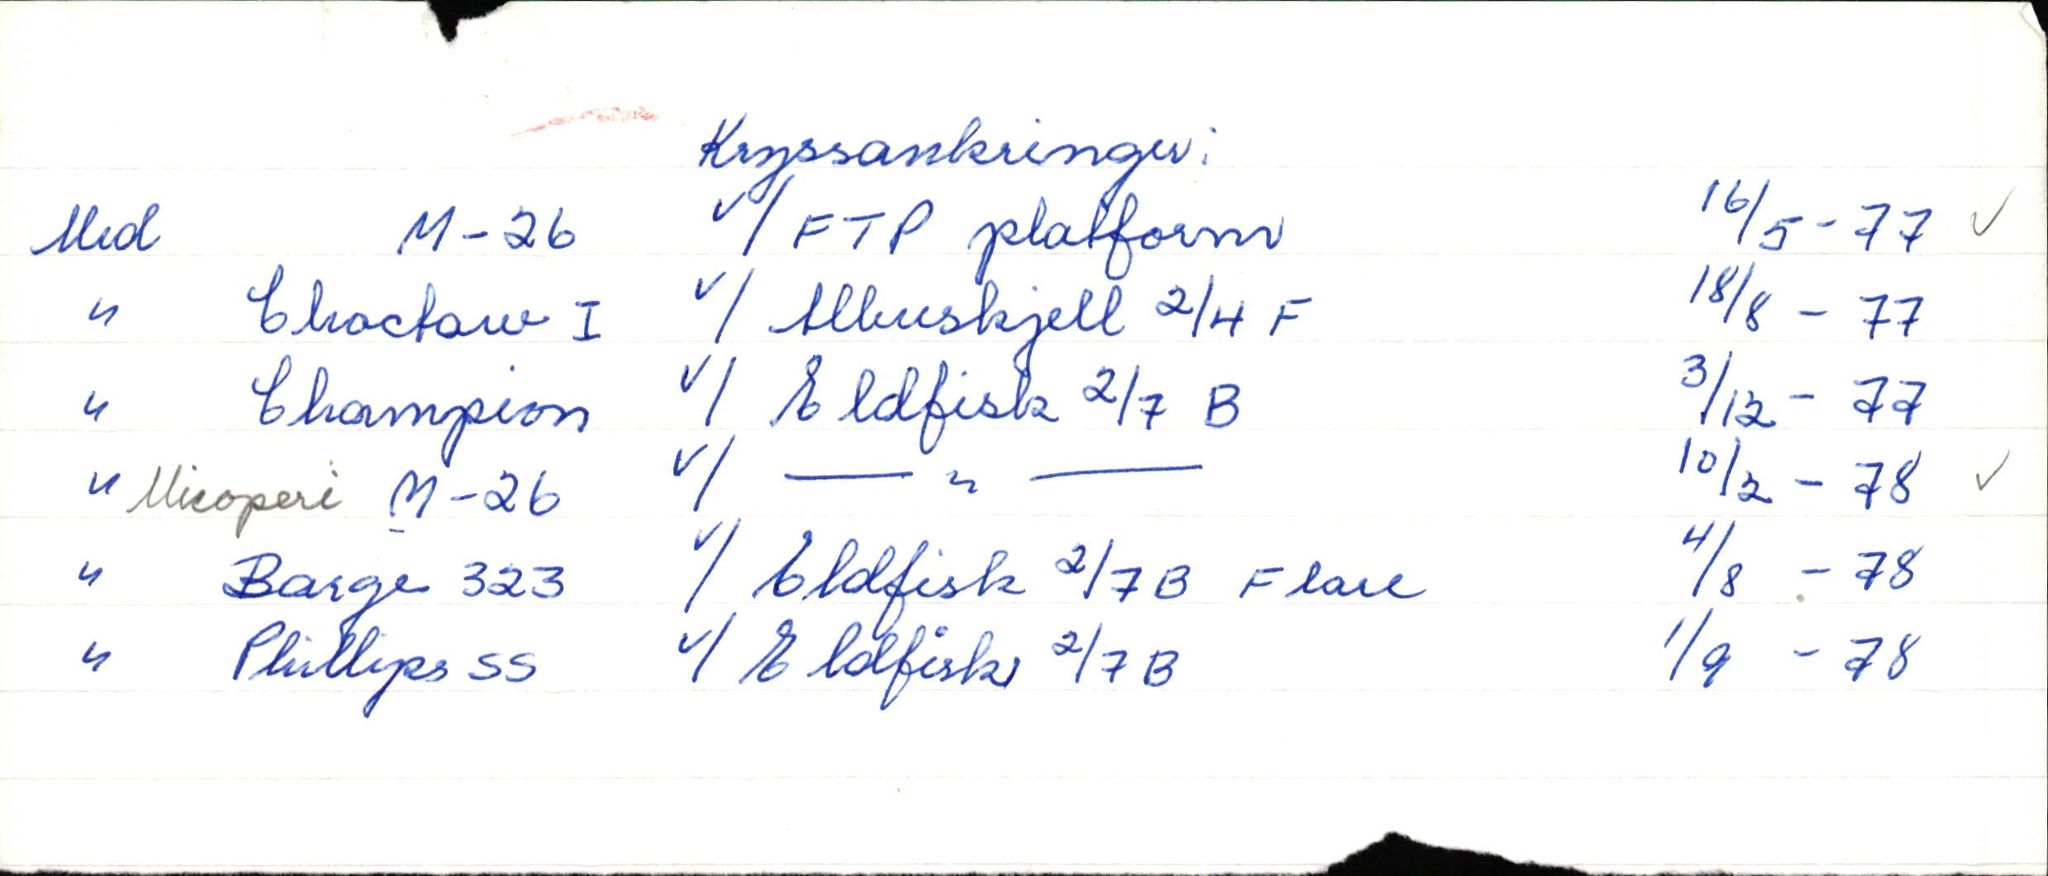 Kryssankringer:
Med M-26 v/ FTP platform 16/5-77 ✓
" Choctaw I v/ Albuskjell 2/4 F 18/8 - 77
" Champion v/ Eldfisk 2/7 B 3/12 - 77
" Micoperi M-26 v/ —— " —— 10/2 - 78 ✓
" Barge 323 v/ Eldfisk 2/7 B Flare 4/8 - 78
" Phillips SS v/ Eldfisk 2/7 B 1/9 - 78